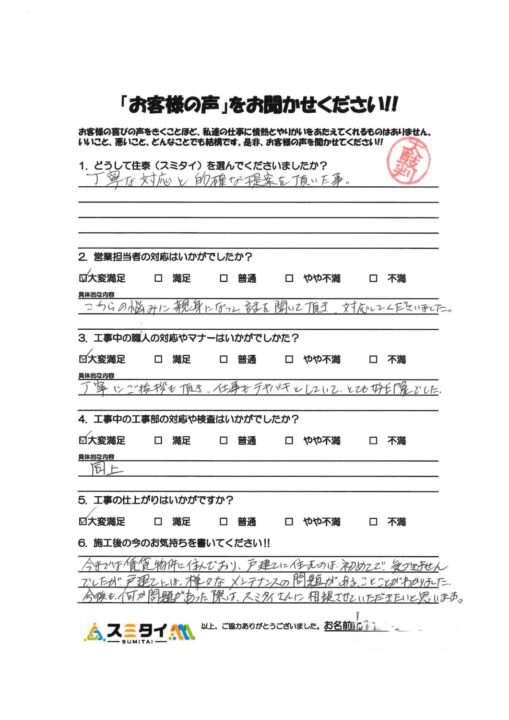 「お客様の声」をお聞かせください!!
お客様の喜びの声をきくことほど、私達の仕事に情熱とやりがいをあたえてくれるものはありません。
いいこと、悪いこと、どんなことでも結構です。是非、お客様の声を聞かせてください!!
太鼓判
1. どうして住泰(スミタイ)を選んでくださいましたか?
丁寧な対応と的確な提案を頂いた事。
2. 営業担当者の対応はいかがでしたか?
☑大変満足 □ 満足 □ 普通 □ やや不満 □ 不満
具体的な内容
こちらの悩みに親身になって話を聞いて頂き、対応してくださいました。
3. 工事中の職人の対応やマナーはいかがでしかた?
☑大変満足 □ 満足 □ 普通 □ やや不満 □ 不満
具体的な内容
丁寧にご挨拶も頂き、仕事もテキパキとしていて、とても好印象でした。
4. 工事中の工事部の対応や検査はいかがでしたか?
☑大変満足 □ 満足 □ 普通 □ やや不満 □ 不満
具体的な内容
同上
5. 工事の仕上がりはいかがですか?
☑大変満足 □ 満足 □ 普通 □ やや不満 □ 不満
6. 施工後の今のお気持ちを書いてください!!
今までは賃貸物件に住んでおり、戸建てに住むのは初めてで気づきません
でしたが戸建てには、様々なメンテナンスの問題があることことがわかりました。
今後も、何か問題があった際は、スミタイさんに相談させていただきたいと思います。
スミタイ
SUMITAI
以上、ご協力ありがとうございました。お名前